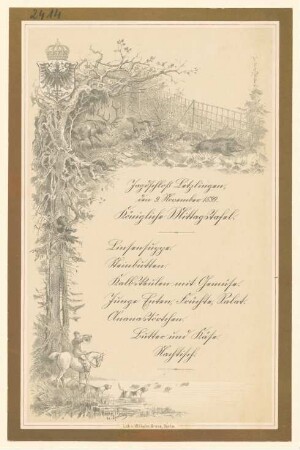 2414
Jagdschloß Letzlingen,
den 2. November 1889.
Königliche Mittagstafel.
Linsensuppe.
Steinbutten.
Kalbskeulen mit Gemüse.
Junge Puten, Früchte, Salat.
Ananastörtchen.
Butter und Käse
Nachtisch.